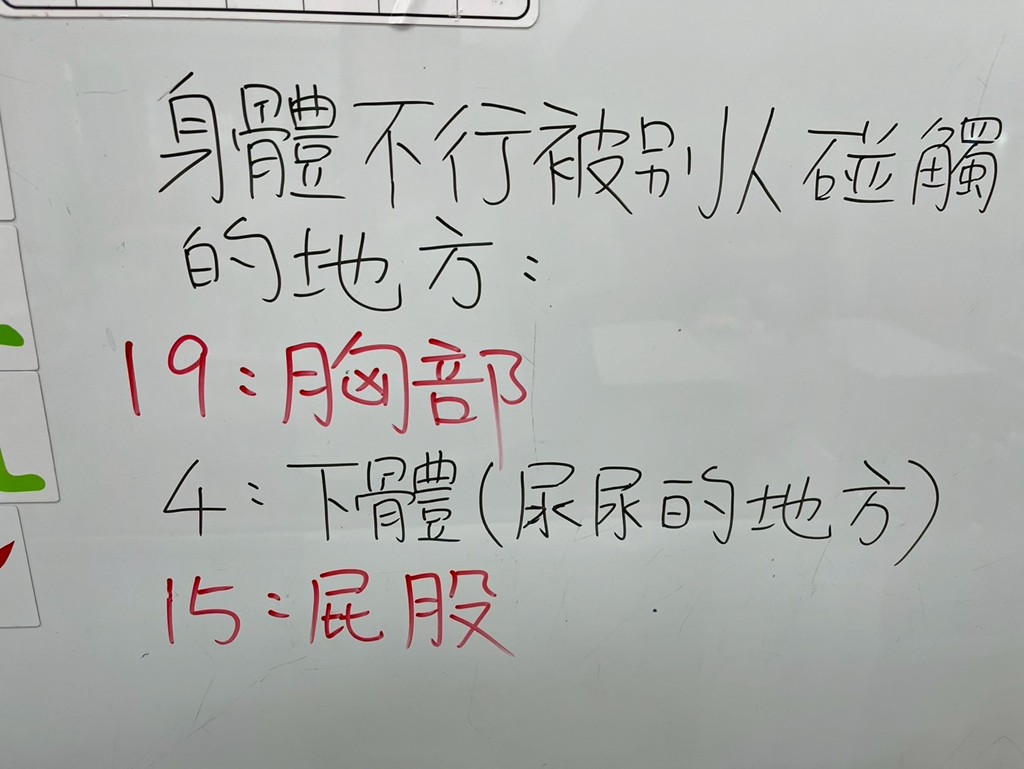 身體不行被別人碰觸
的地方：
19：胸部
4：下體(尿尿的地方)
15：屁股